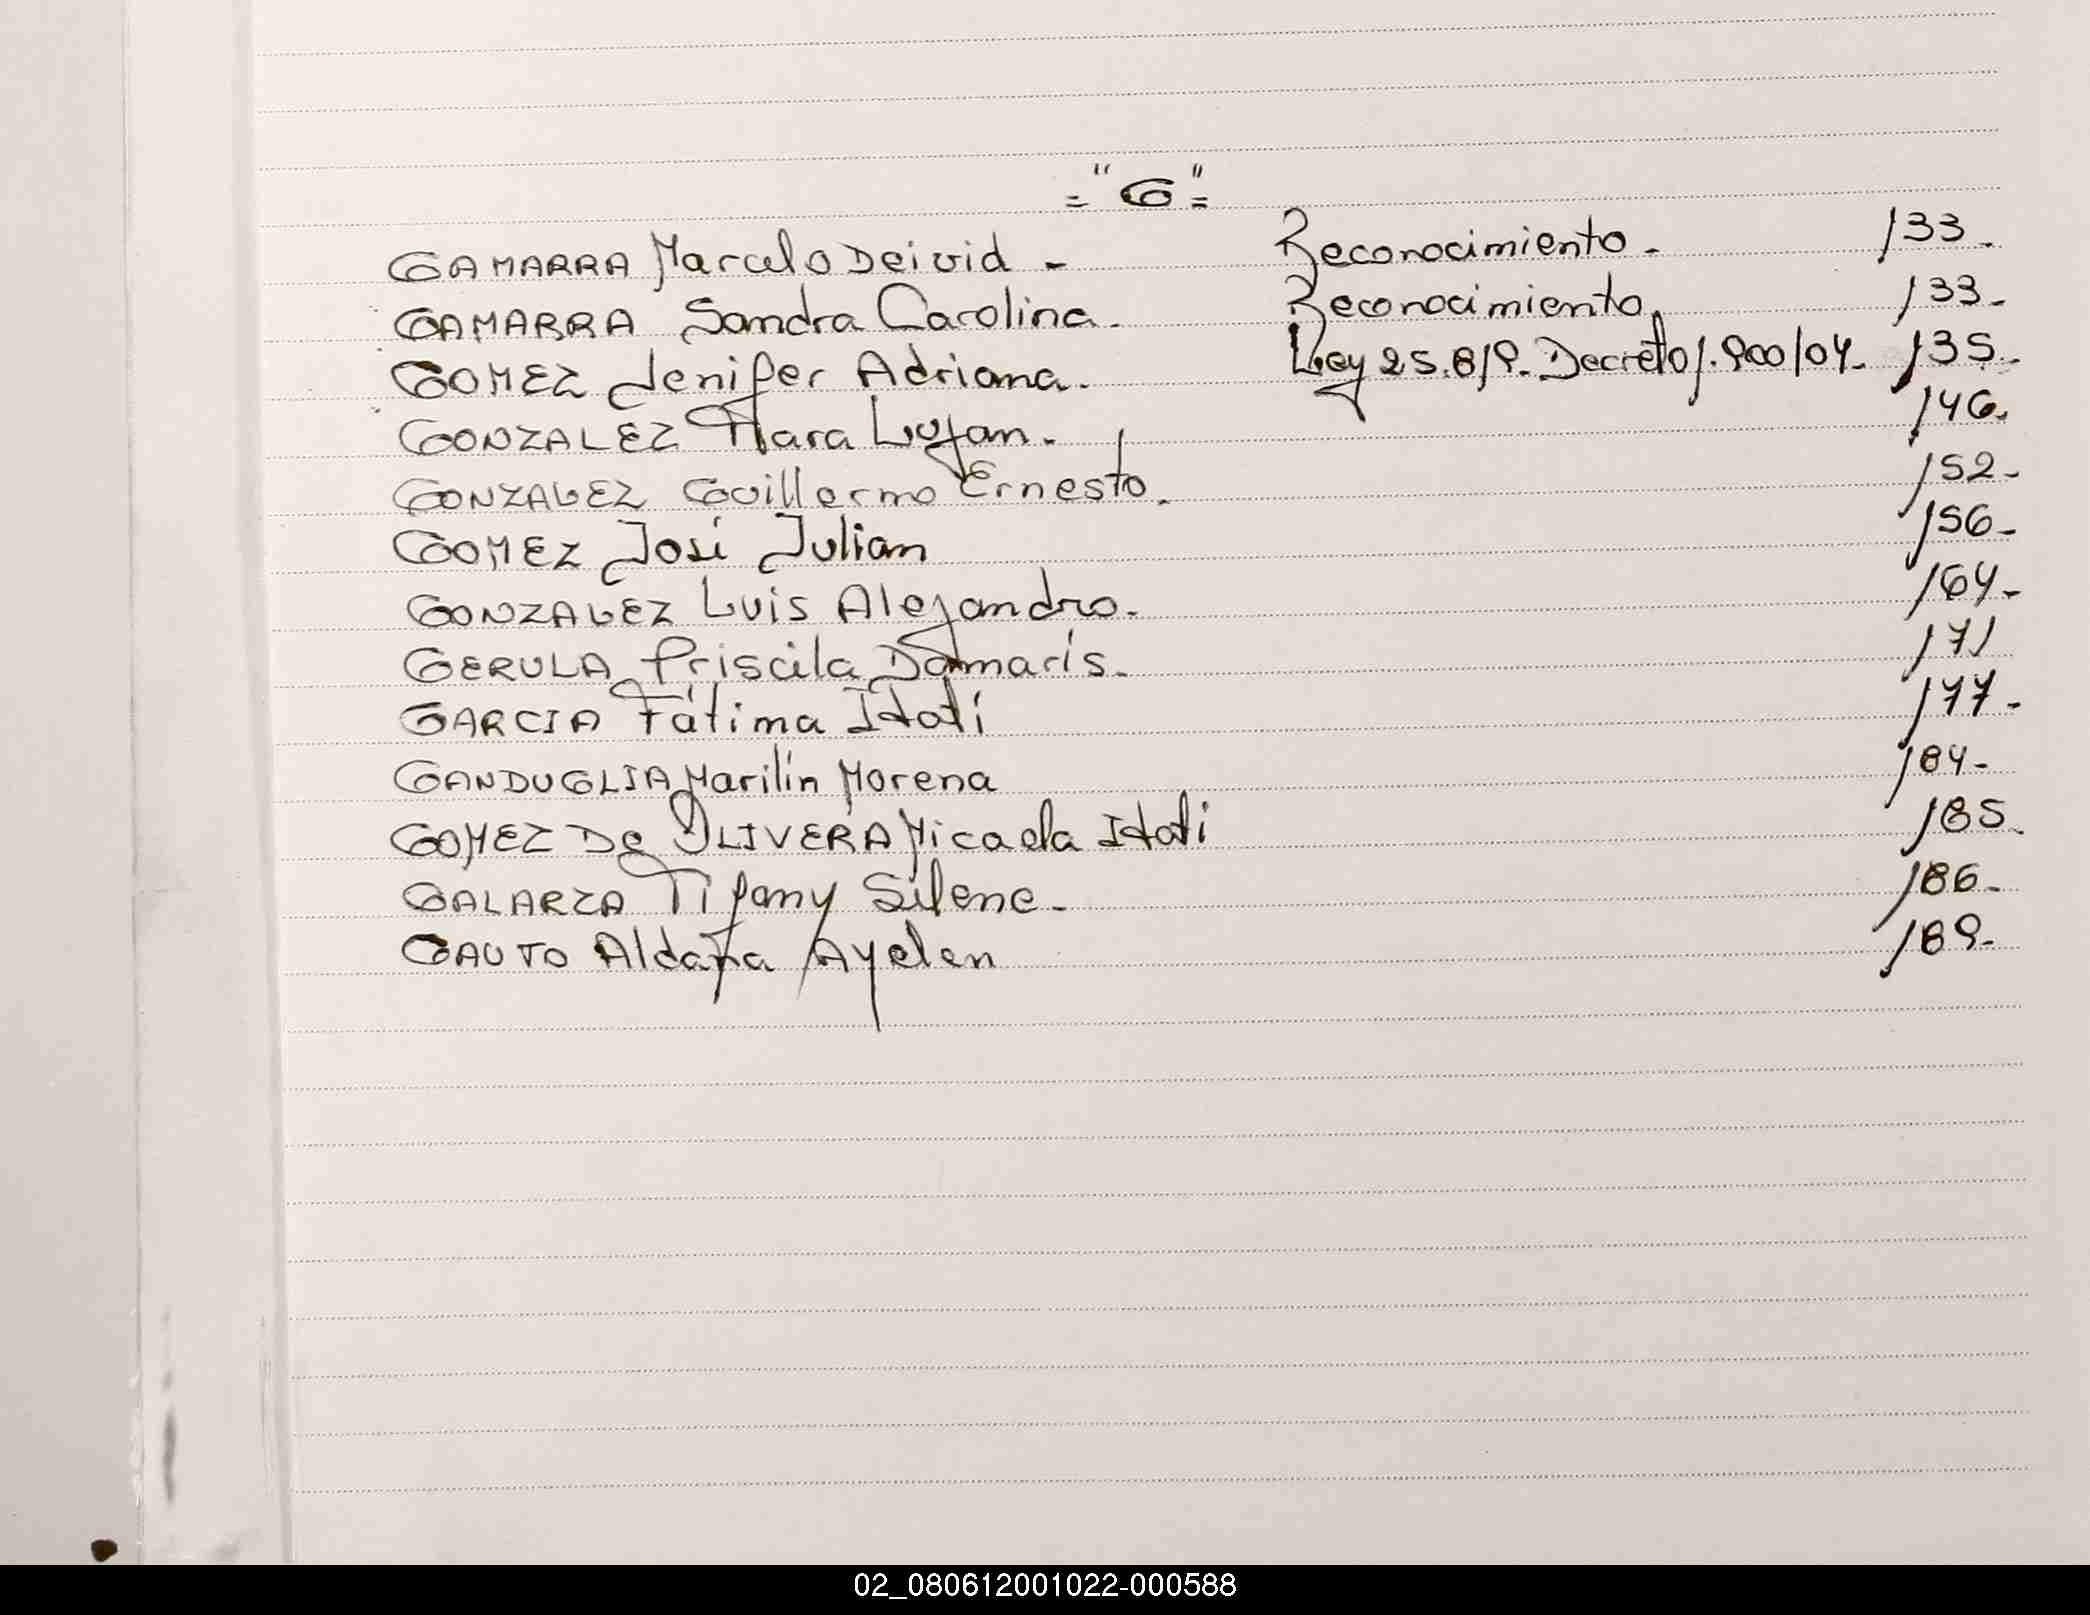 ="G"=
GAMARRA Marcelo Deivid - Reconocimiento. 133.
GAMARRA Sandra Carolina. Reconocimiento. 133.
GOMEZ Jenifer Adriana. Ley 25.819. Decreto 1.900/04. 135.
GONZALEZ Mara Lujan. 146.
GONZALEZ Guillermo Ernesto. 152-
GOMEZ José Julian 156-
GONZALEZ Luis Alejandro. 164-
GERULA Priscila Damaris. 171
GARCIA Fátima Itatí 177-
GANDUGLIA Marilín Morena 184-
GOMEZ De OLIVERA Micaela Itati 185.
GALARZA Tifany Silene. 186-
GAUTO Aldana Ayelen 189-
02_080612001022-000588